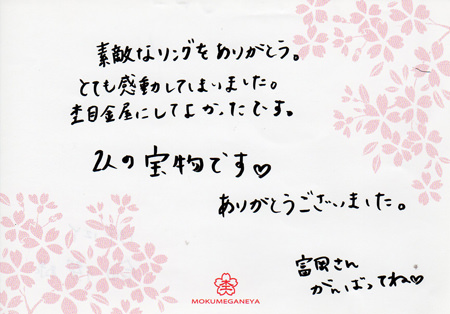 素敵なリングをありがとう。
とても感動してしまいました。
杢目金屋にしてよかったです。
2人の宝物です♡
ありがとうございました。
冨岡さん
がんばってね♡
杢
MOKUMEGANEYA